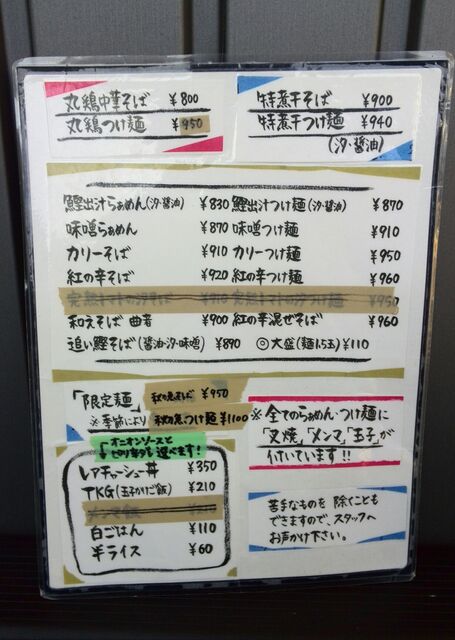 丸鶏中華そば ¥800
丸鶏つけ麺 ¥950
特煮干そば ¥900
特煮干つけ麺 ¥940
(汐・醤油)
鰹出汁らぁめん(汐・醤油) ¥830 鰹出汁つけ麺(汐・醤油) ¥870
味噌らぁめん ¥870 味噌つけ麺 ¥910
カリーそば ¥910 カリーつけ麺 ¥950
紅の辛そば ¥920 紅の辛つけ麺 ¥960
完熟トマトのツタそば ¥910 完熟トマトのツタつけ麺 ¥950
和えそば 曲者 ¥900 紅の辛混ぜそば ¥960
追い鰹そば(醤油・汐・味噌) ¥890 ◎大盛(麺1.5玉)¥110
「限定麺」 秋刀魚そば ¥950
※季節により 秋刀魚つけ麺 ¥1100
オニオンソースと
ピリ辛ダレ 選べます!
レアチャーシュー丼 ¥350
TKG(玉子かけご飯) ¥210
メンマ飯 ¥210
白ごはん ¥110
半ライス ¥60
※全てのらぁめん・つけ麺に
「叉焼」「メンマ」「玉子」が
付いています!!
苦手なものを除くことも
できますので、スタッフへ
お声かけ下さい。